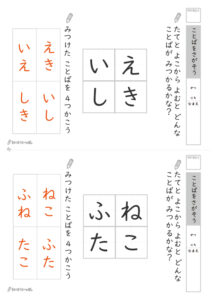 ことばをさがそう
たてと よこから よむと どんな
ことばが みつかるかな？
え き
い し
みつけた ことばを 4つかこう
えき
いし
いえ
しき
ことばをさがそう
たてと よこから よむと どんな
ことばが みつかるかな？
ね こ
ふ た
みつけた ことばを 4つかこう
ねこ
ふた
ふね
たこ